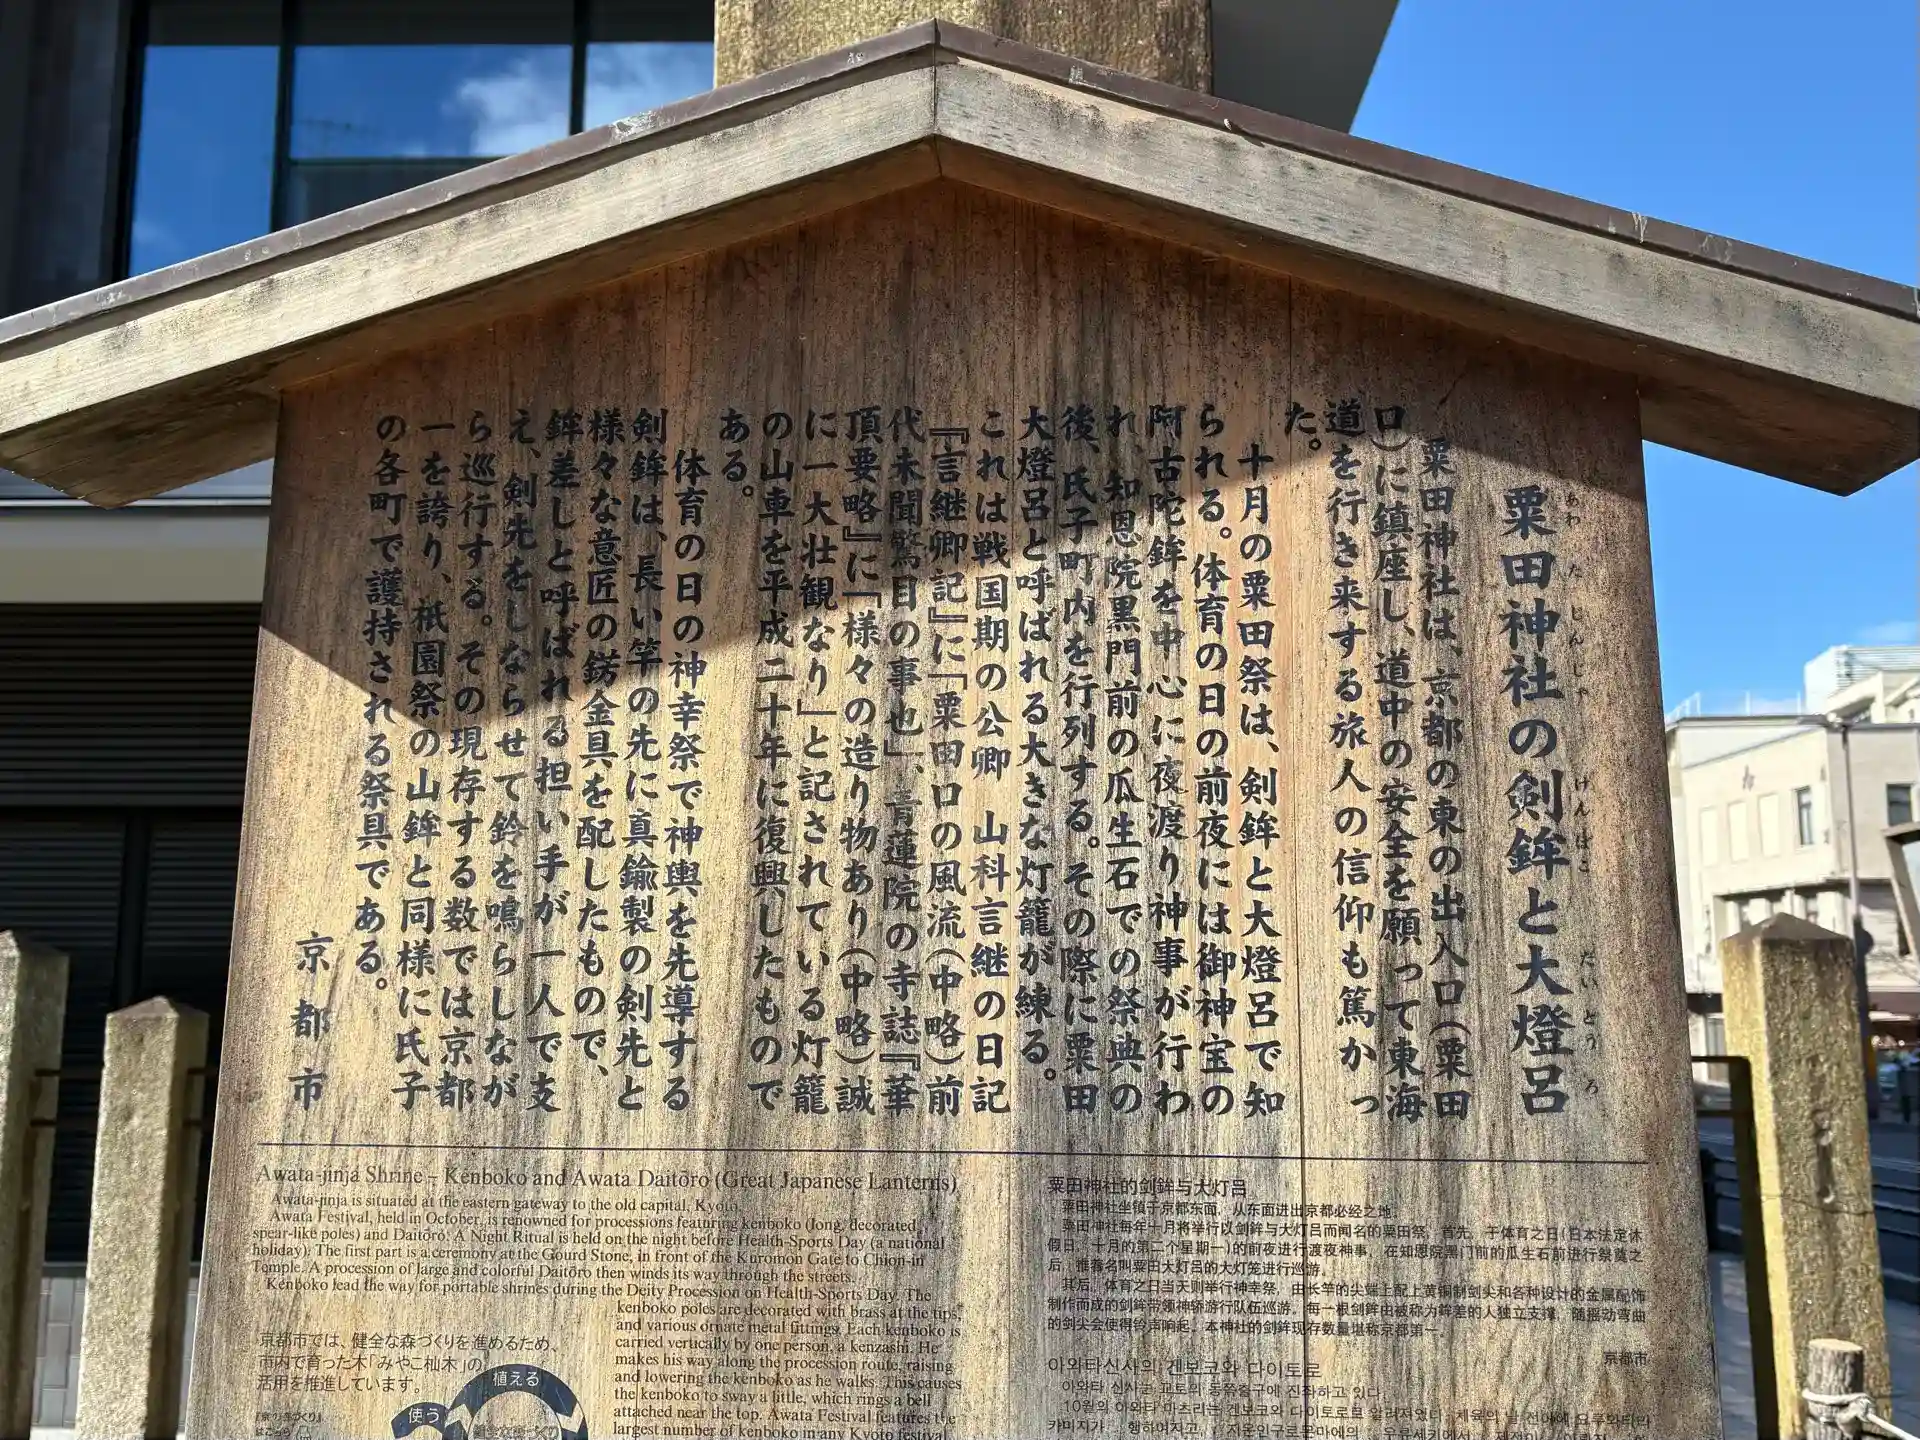 粟田神社の剣鉾と大燈呂
あわたじんじゃ けんぼこ だいとうろ
粟田神社は、京都の東の出入口（粟田
口）に鎮座し、道中の安全を願って東海
道を行き来する旅人の信仰も篤かっ
た。
十月の粟田祭は、剣鉾と大燈呂で知
られる。体育の日の前夜には御神宝の
阿古陀鉾を中心に夜渡り神事が行わ
れ、知恩院黒門前の瓜生石での祭典の
後、氏子町内を行列する。その際に粟田
大燈呂と呼ばれる大きな灯籠が練る。
これは戦国期の公卿 山科言継の日記
『言継卿記』に「粟田口の風流（中略）前
代未聞驚目の事也」、青蓮院の寺誌『華
頂要略』に「様々の造り物あり（中略）誠
に一大壮観なり」と記されている灯籠
の山車を平成二十年に復興したもので
ある。
体育の日の神幸祭で神輿を先導する
剣鉾は、長い竿の先に真鍮製の剣先と
様々な意匠の錺金具を配したもので、
鉾差しと呼ばれる担い手が一人で支
え、剣先をしならせて鈴を鳴らしなが
ら巡行する。その現存する数では京都
一を誇り、祇園祭の山鉾と同様に氏子
の各町で護持される祭具である。
京都市
Awata-jinja Shrine – Kenboko and Awata Daitōro (Great Japanese Lanterns)
Awata-jinja is situated at the eastern gateway to the old capital, Kyoto.
Awata Festival, held in October, is renowned for processions featuring kenboko (long, decorated,
spear-like poles) and Daitōro. A Night Ritual is held on the night before Health-Sports Day (a national
holiday). The first part is a ceremony at the Gourd Stone, in front of the Kuromon Gate to Chion-in
Temple. A procession of large and colorful Daitōro then winds its way through the streets.
Kenboko lead the way for portable shrines during the Deity Procession on Health-Sports Day. The
kenboko poles are decorated with brass at the tips,
and various ornate metal fittings. Each kenboko is
carried vertically by one person, a kenzashi. He
makes his way along the procession route, raising
and lowering the kenboko as he walks. This causes
the kenboko to sway a little, which rings a bell
attached near the top. Awata Festival features the
largest number of kenboko in any Kyoto festival
京都市では、健全な森づくりを進めるため、
市内で育った木「みやこ杣木」の
活用を推進しています。
植える
使う
粟田神社的剑鉾与大灯吕
粟田神社坐镇于京都东面，从东面进出京都必经之地。
粟田神社每年十月将举行以剑鉾与大灯吕而闻名的粟田祭，首先，于体育之日（日本法定休
假日，十月的第二个星期一）的前夜进行渡夜神事，在知恩院黑门前的瓜生石前进行祭奠之
后，推着名叫粟田大灯吕的大灯笼进行巡游。
其后，体育之日当天则举行神幸祭，由长竿的尖端上配上黄铜制剑尖和各种设计的金属配饰
制作而成的剑鉾带领神轿游行队伍巡游。每一根剑鉾由被称为鉾差的人独立支撑，随摇动弯曲
的剑尖会使得铃声响起。本神社的剑鉾现存数量堪称京都第一。
京都市
아와타신사의 겐보코와 다이토로
아와타 신사는 교토의 동쪽출구에 진좌하고 있다.
10월의 아와타 마츠리는 겐보코와 다이토로로 알려져있다.